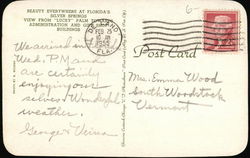 BEAUTY EVERYWHERE AT FLORIDA'S
SILVER SPRINGS
VIEW FROM "LUCKY" PALM TOWARD
ADMINISTRATION AND
BUILDINGS
FEB 25
FLA.
Post Card
We arrived
Wed. P.M. and
are certainly
enjoying our
selves. Wonderful
weather.
George & Verna
Mrs. Emma Wood
South Woodstock
Vermont